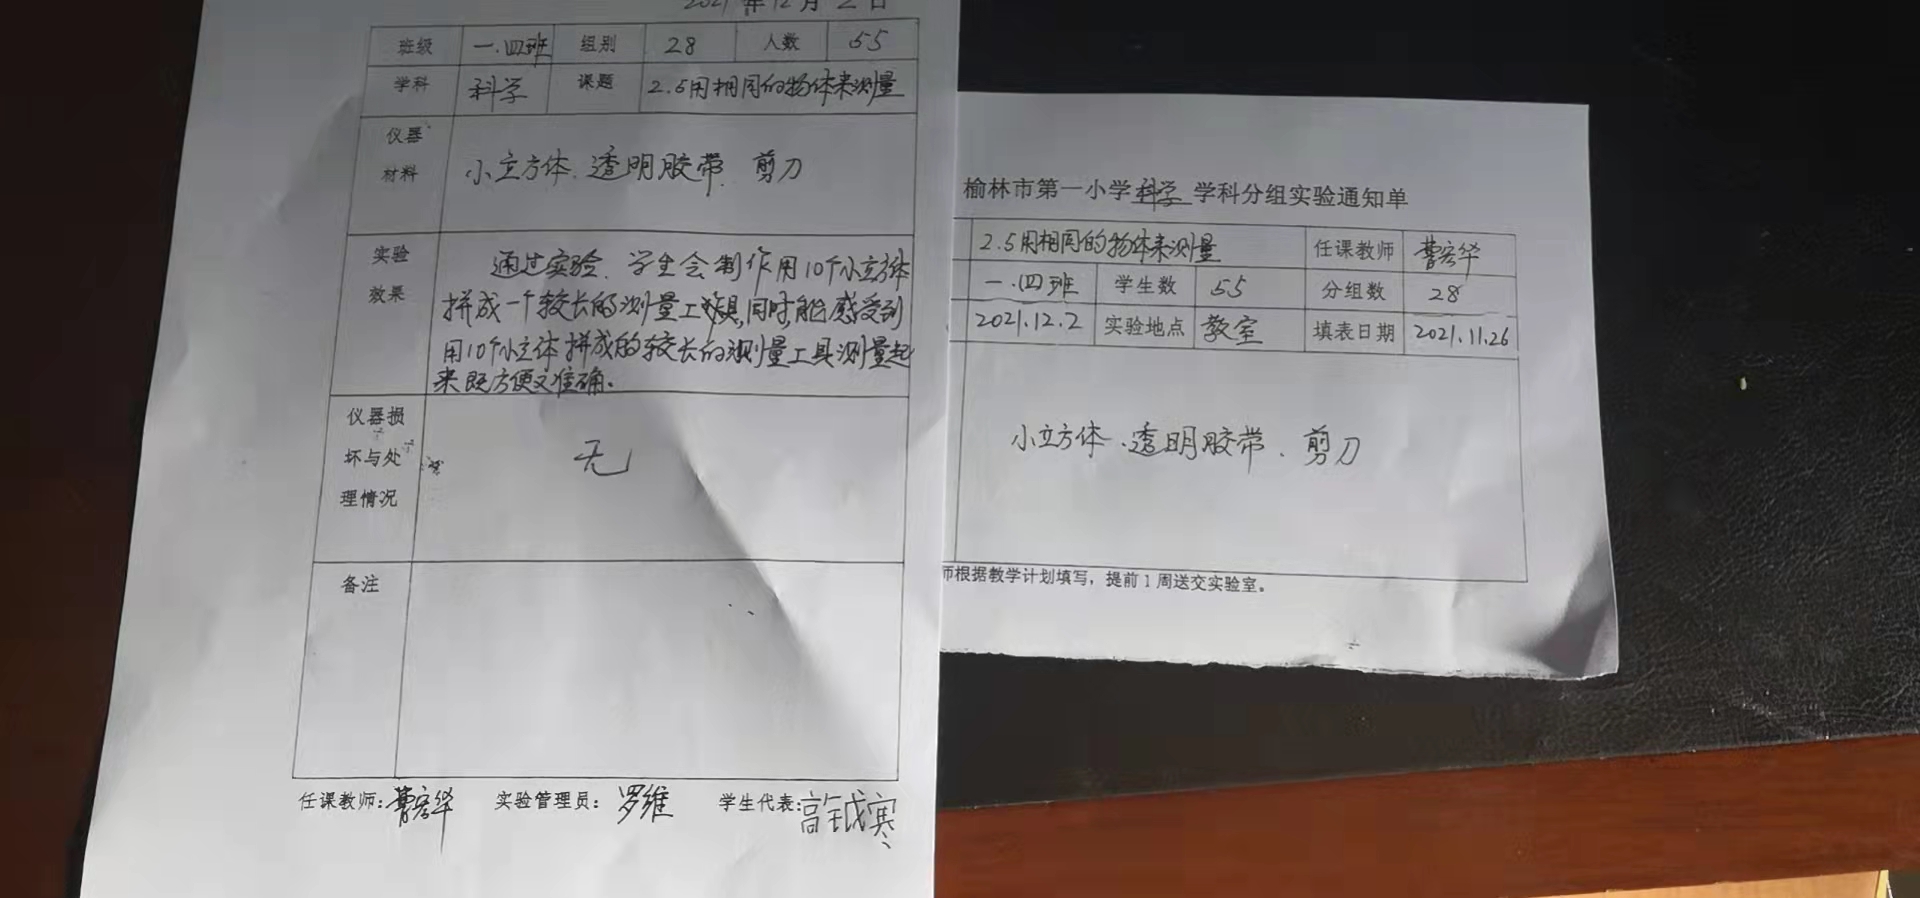 2021年12月2日
班级 一.四班 组别 28 人数 55
学科 科学 课题 2.5用相同的物体来测量
仪器
材料
小立方体、透明胶带、剪刀
实验
效果
通过实验、学生会制作用10个小立方体
拼成一个较长的测量工具,同时,能感受到
用10个小立体拼成的较长的测量工具测量起
来既方便又准确。
仪器损
坏与处
理情况
无
备注
任课教师:曹宏华 实验管理员:罗维 学生代表:高钺寒
榆林市第一小学科学学科分组实验通知单
2.5用相同的物体来测量 任课教师 曹宏华
一.四班 学生数 55 分组数 28
2021.12.2 实验地点 教室 填表日期 2021.11.26
小立方体、透明胶带、剪刀
师根据教学计划填写，提前1周送交实验室。